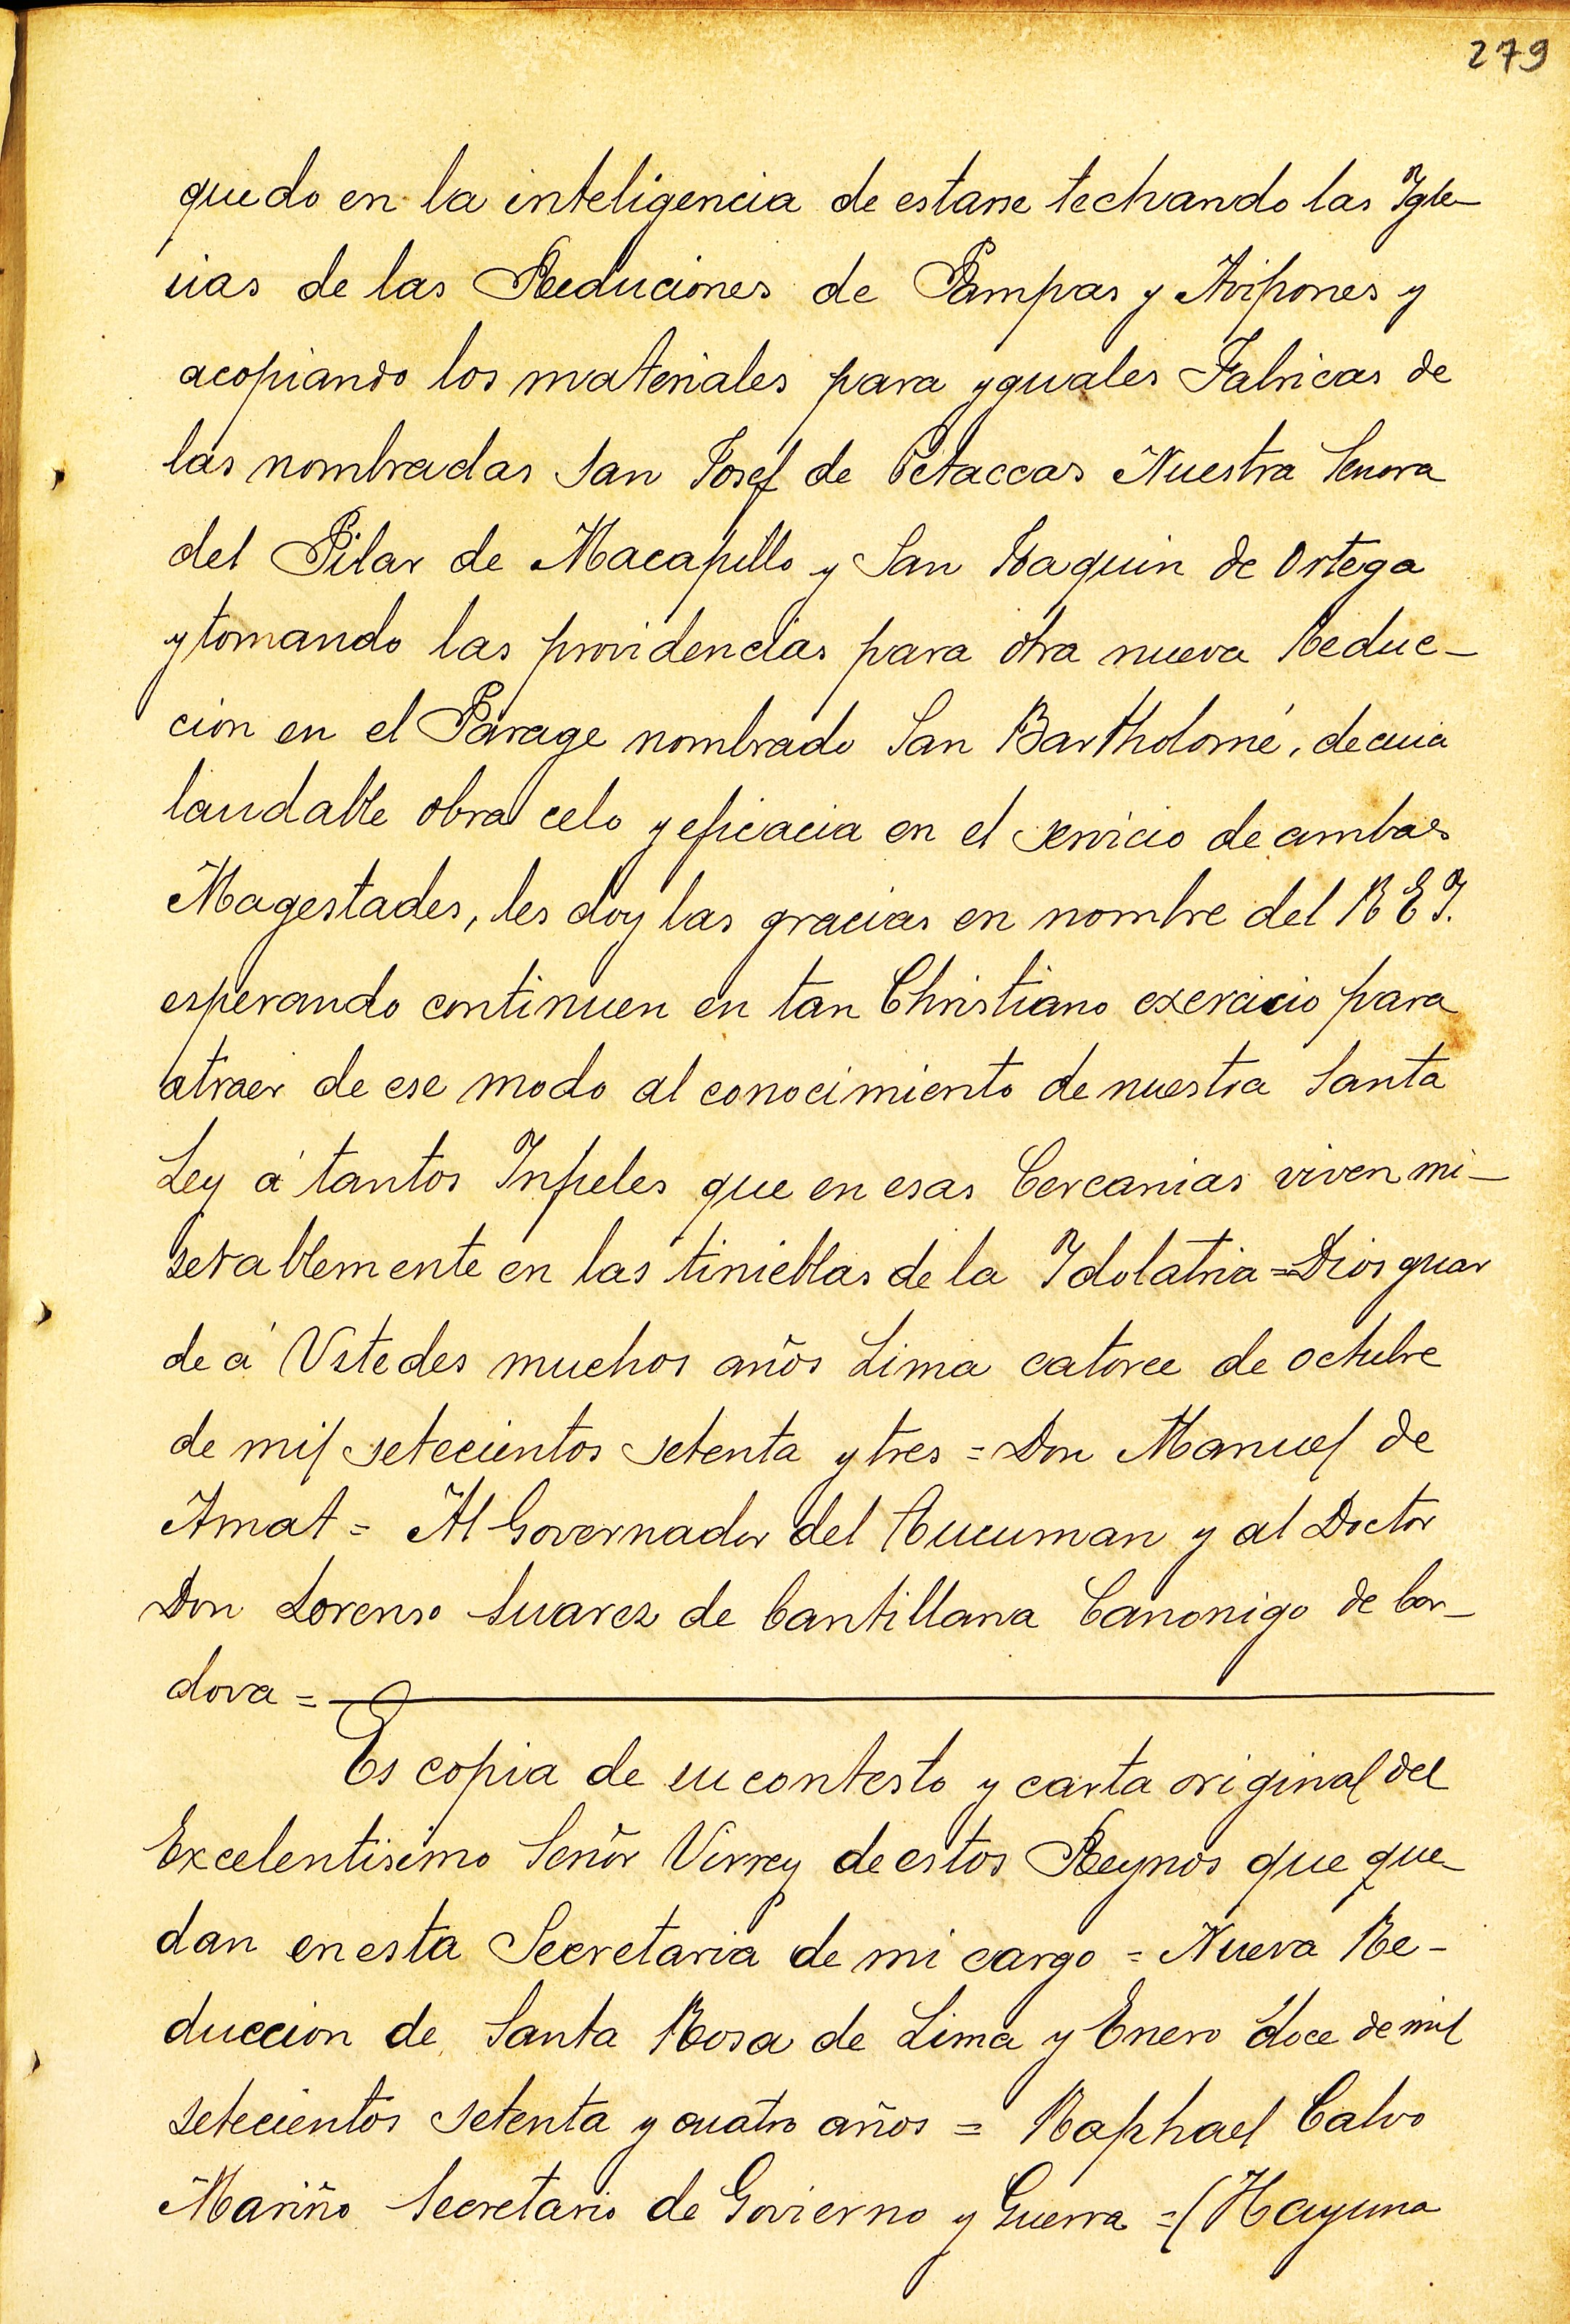 279
quedo en la inteligencia de estarse techando las Igle-
sias de las Reduciones de Pampas y Avipones y
acopiando los materiales para yguales Fabricas de
las nombradas San Josef de Petaccas Nuestra Senora
del Pilar de Macapillo y San Joaquin de Ortega
y tomando las providencias para otra nueva Reduc-
cion en el Parage nombrado San Bartholomé, de cuia
laudable obra celo y eficacia en el servicio de ambas
Magestades, les doy las gracias en nombre del R E I.
esperando continuen en tan Christiano exercicio para
atraer de ese modo al conocimiento de nuestra Santa
Ley á tantos Infieles que en esas Cercanias viven mi-
serablemente en las tinieblas de la Idolatria = Dios guar
de á Vstedes muchos años Lima catorce de octubre
de mil setecientos setenta y tres = Don Manuel de
Amat = Al Governador del Tucuman y al Doctor
Don Lorenso Suarez de Cantillana Canonigo de Cor-
dova =
Es copia de su contesto y carta original del
Excelentisimo Señor Virrey de estos Reynos que que-
dan en esta Secretaria de mi cargo = Nueva Re-
duccion de Santa Rosa de Lima y Enero doce de mil
setecientos setenta y cuatro años = Raphael Calvo
Mariño Secretario de Govierno y Guerra = (Hay una